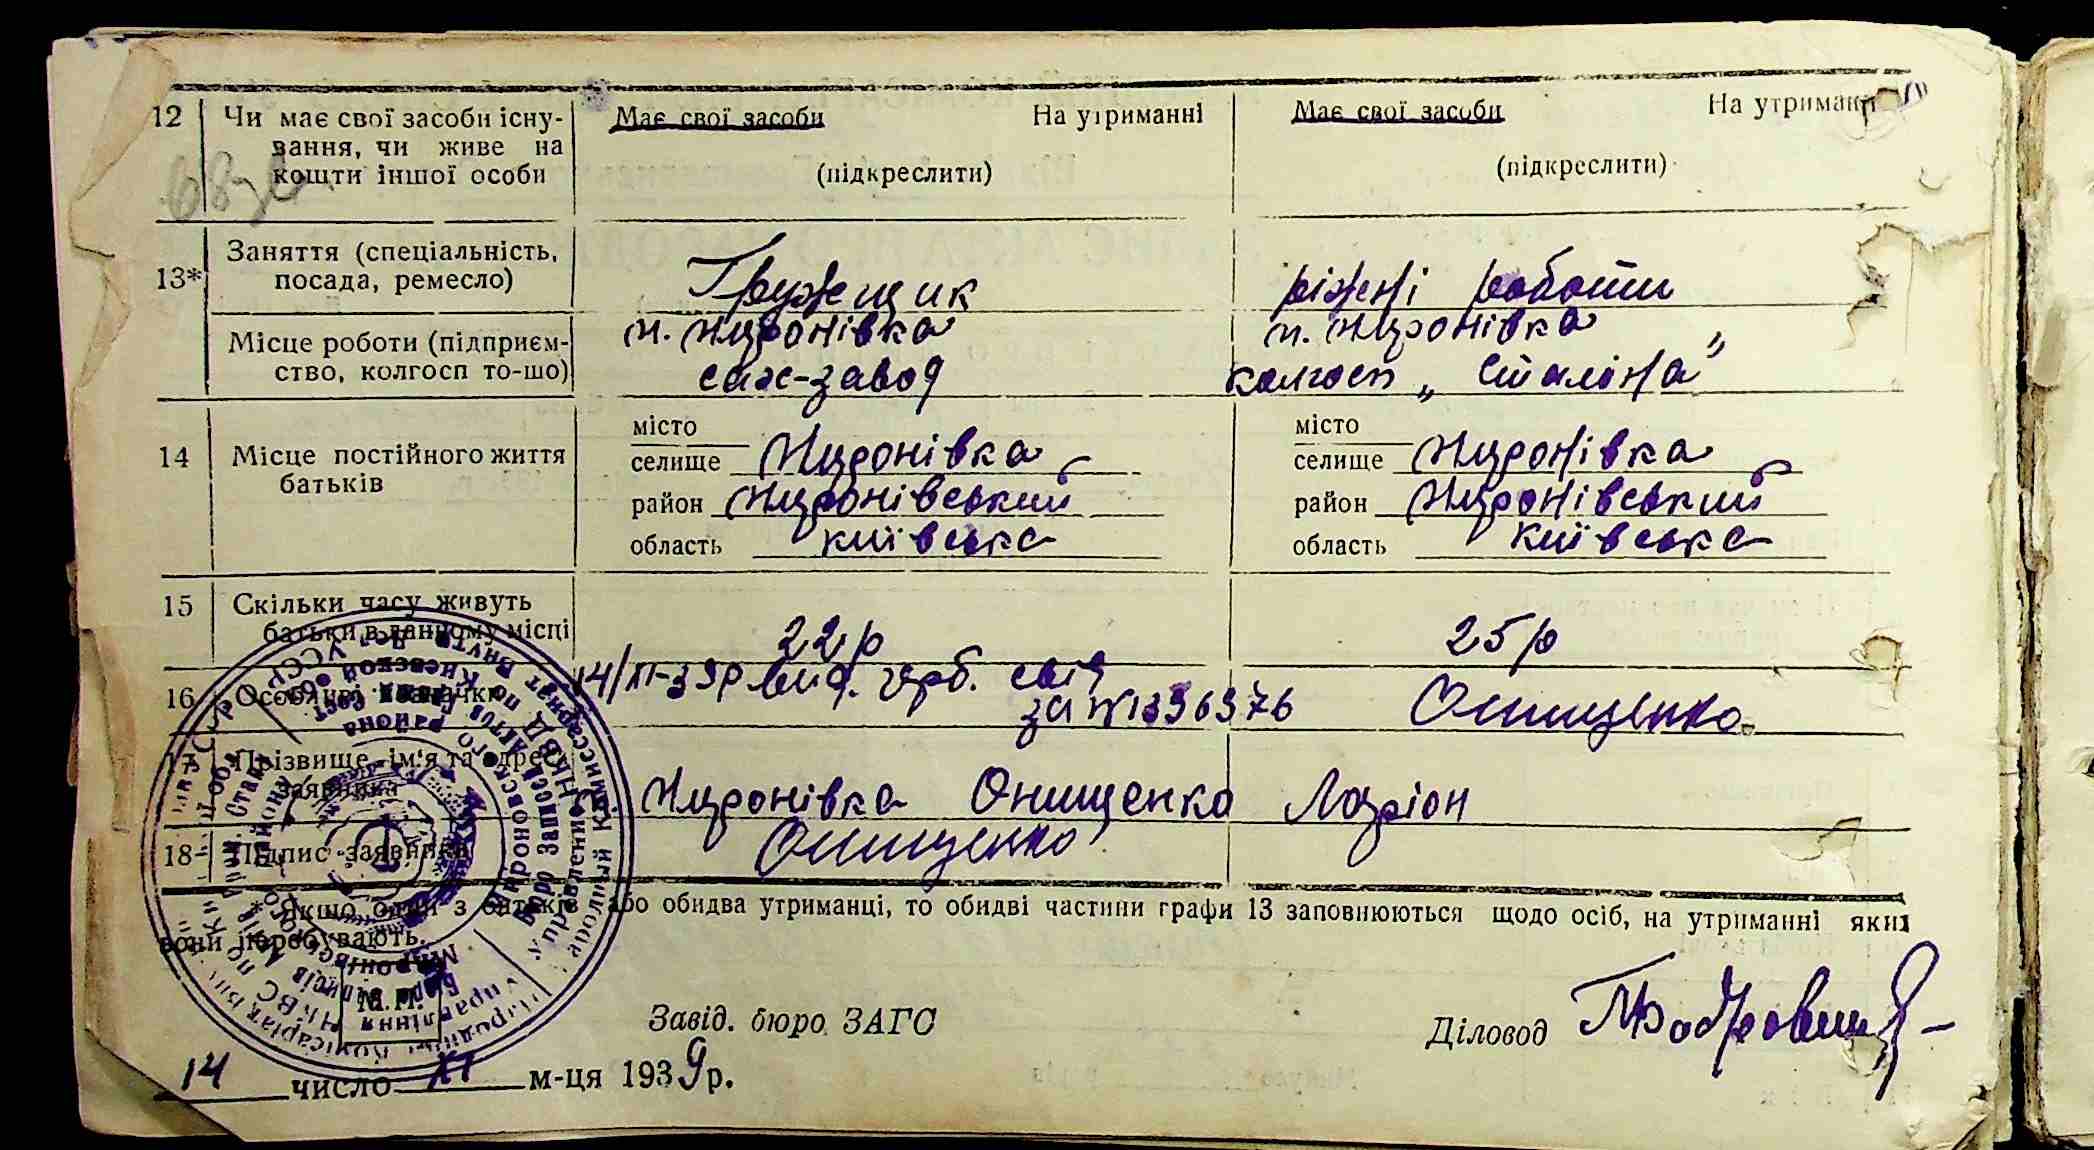 12 Чи має свої засоби існу- Має свої засоби На утриманні Має свої засоби На утриманні
вання, чи живе на
кошти іншої особи (підкреслити) (підкреслити)
13* Заняття (спеціальність,
посада, ремесло) Гружещик ріжні роботи
Місце роботи (підприєм- м. Миронівка м. Миронівка
ство, колгосп то-що) сах-завод колгосп „Сталіна"
місто місто
14 Місце постійного життя селище Миронівка селище Миронівка
батьків район Миронівський район Миронівський
область київська область київська
15 Скільки часу живуть
батьки в данному місці 22 р 25 р
16 Особливі 14/XI-39р вид. герб. свід
за №1336376 Онищенко
17 Прізвище, ім'я та адреса
заявника Миронівка Онищенко Ларіон
18 Підпис заявника Онищенко
* Якщо один з батьків або обидва утриманці, то обидві частини графи 13 заповнюються щодо осіб, на утриманні яких
вони перебувають.
М.П.
Завід. бюро ЗАГС Діловод
14 число XI м-ця 1939р.